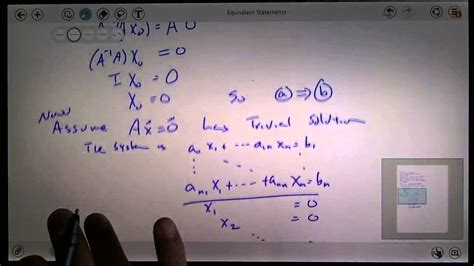 Equivalent Statements
A⁻¹(A X₀) = A⁻¹ 0
(A⁻¹A) X₀ = 0
I X₀ = 0
X₀ = 0 So ⓐ ⇒ ⓑ
Now
Assume Ax⃗ = 0⃗ has Trivial Solution
The system is a₁₁ x₁ + ⋯ a₁ₙ xₙ = b₁
aₙ₁ x₁ + ⋯ + aₙₙ xₙ = bₙ
x₁ = 0
x₂ = 0